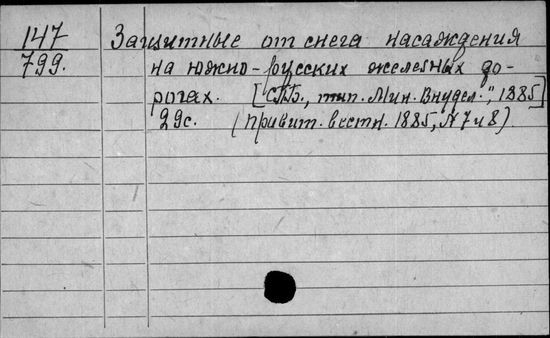 147
799.
Защитные от снега насаждения
на южно-русских железных до-
рогах. [СПБ., тип. Мин. Внудел.", 1885]
29с. (Правит. вестн. 1885, №7 и 8).